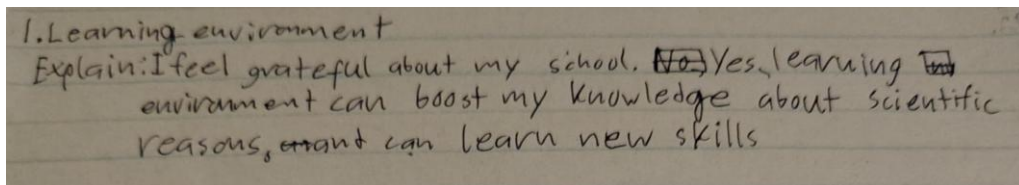 1. Learning environment
Explain: I feel grateful about my school. Yes, learning
environment can boost my knowledge about scientific
reasons, ant can learn new skills